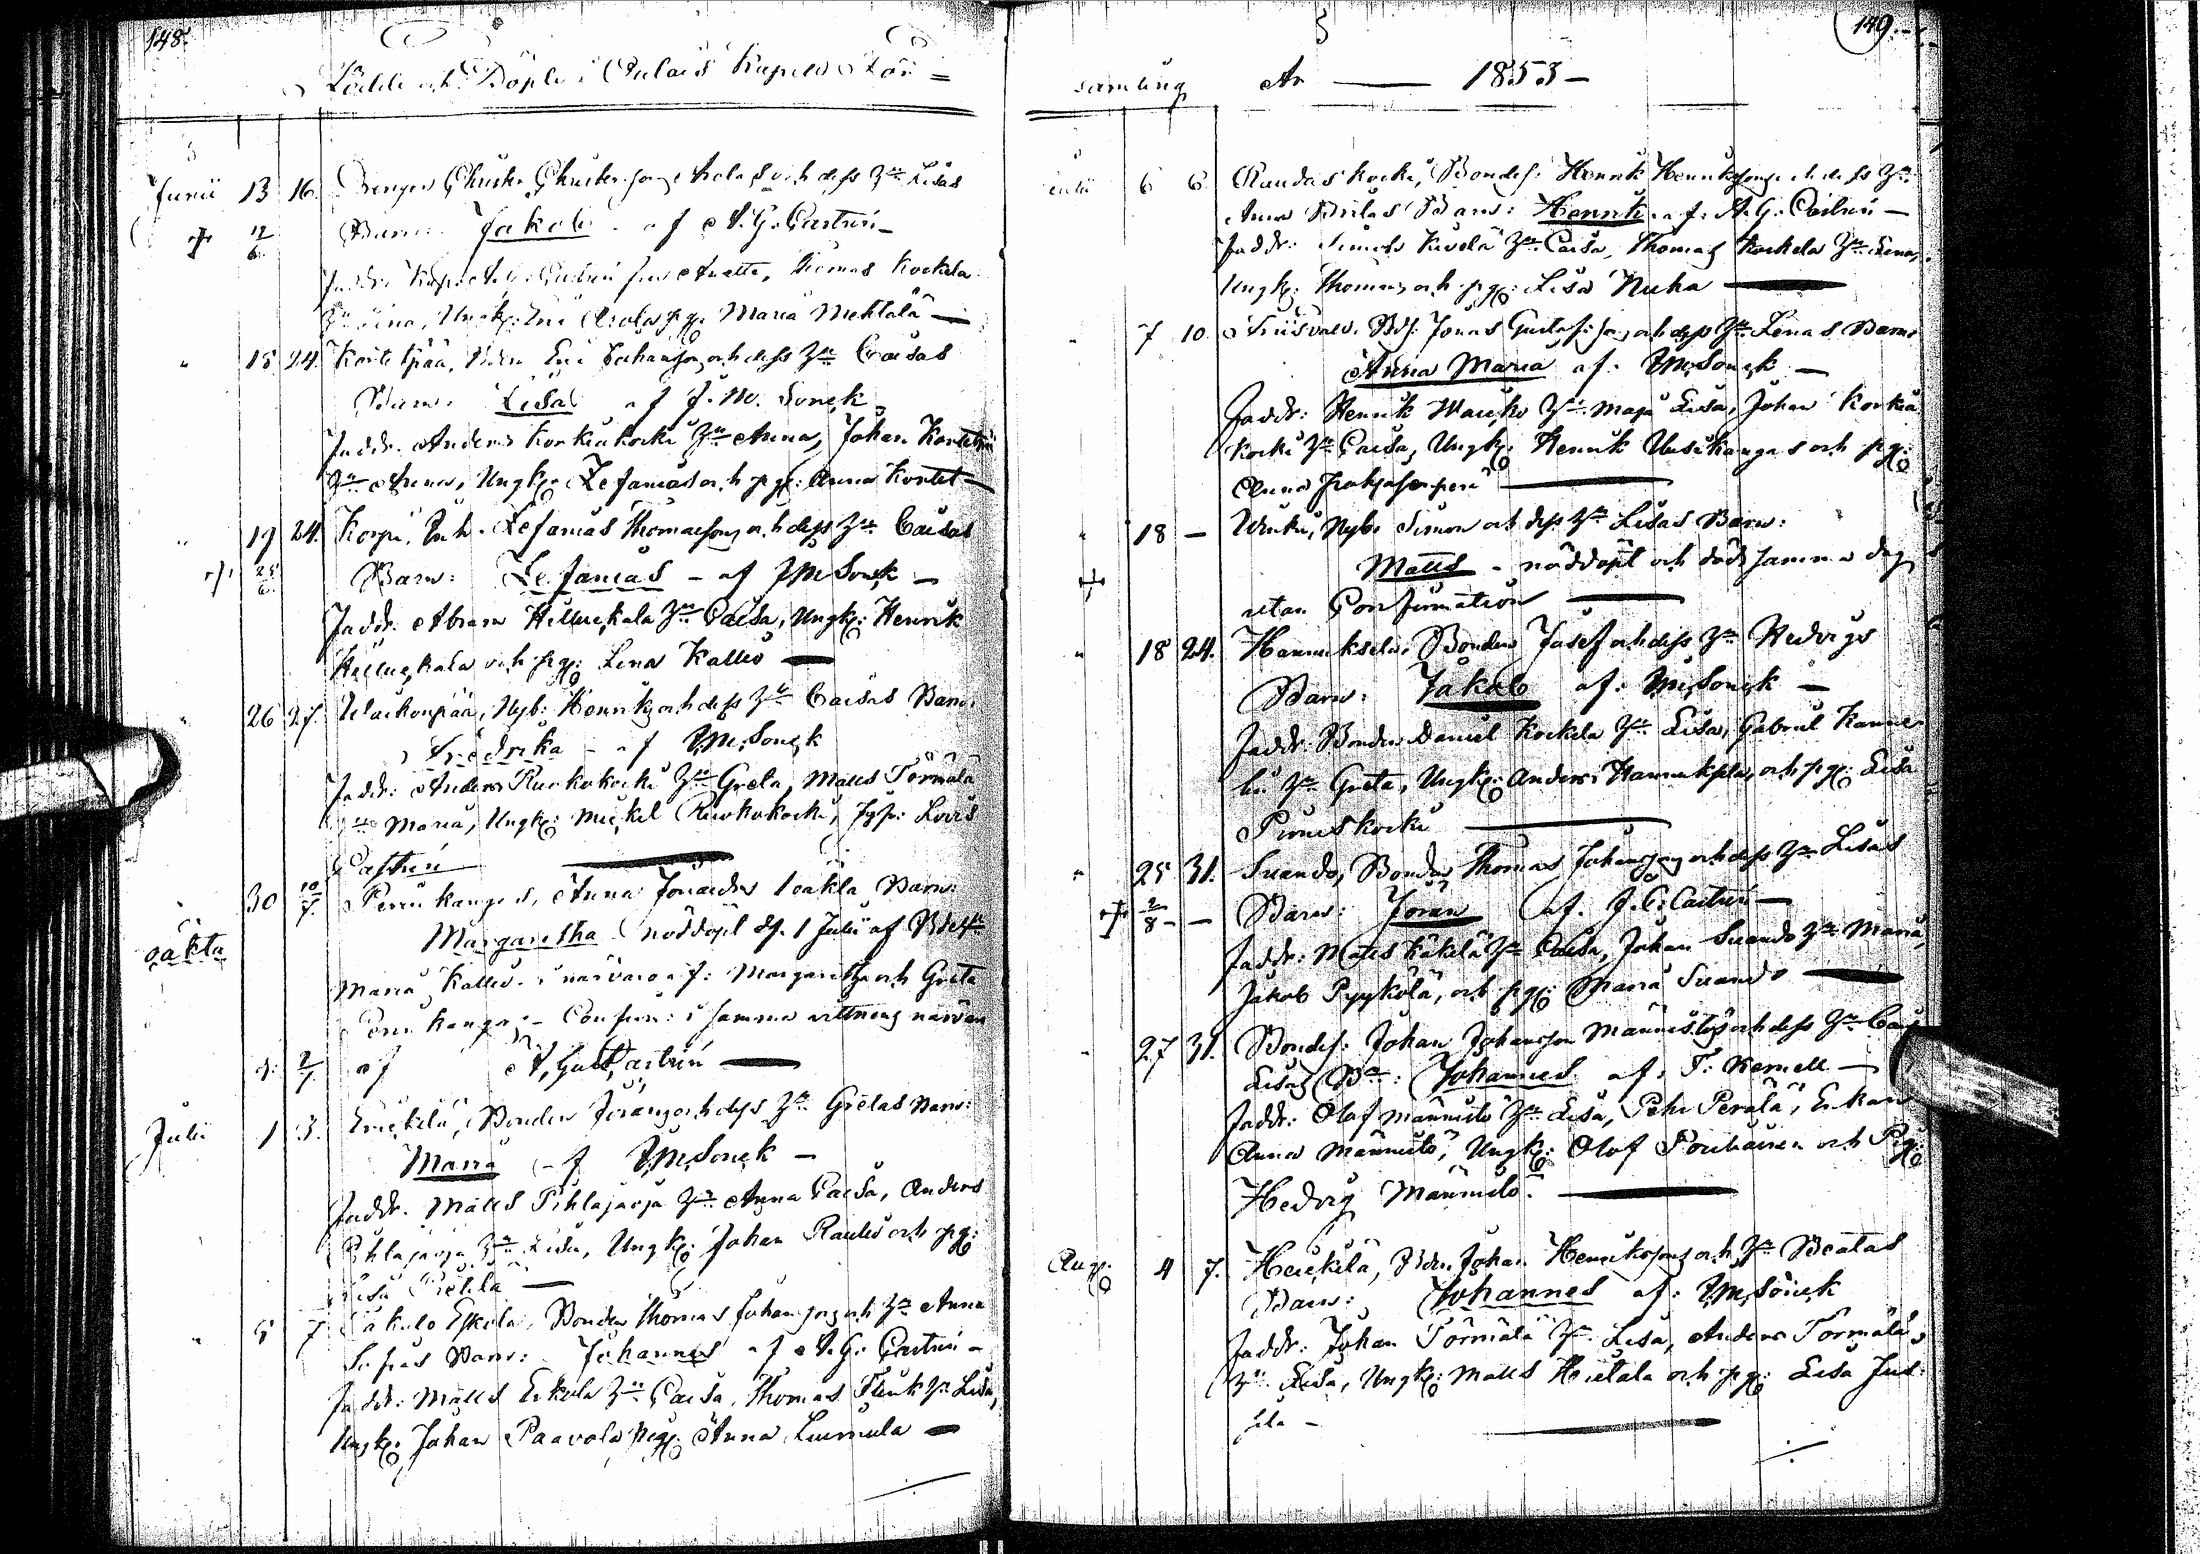 148.
Födde och Döpte i Pulais Kapells För=
Junii 13 16. Drengen Christer Christersons Arola och dess H:u Lisas
† 17/6 Barn: Jakob af A. G. Castrén
Faddr: Kap: A. G. Castrén Anette, Thomas Kockela
H:u Lena, Ungk: Eric Arola pig: Maria Mehtälä
" 15 24. Bden Eric Johansson och dess H:u Caisas
Barn: Lisa af J. M. Sonck
Faddr. Anders Korkiakoski H:u Anna, Johan
H:u Anna, Ungk: Zefanias och pig: Anna Kortet
" 19 24. Korpi, Inh. Zefanias Thomasson och dess H:u Caisas
† 25/6 Barn: Zefanias - af J M Sonck
Faddr. Abram Hilliukala H:u Caisa, Ungk: Henrik
Hilliukala och pig: Lena Kallio
" 26 27. Nyb: Henrik och dess H:u Caisas Barn:
Fredrika - af J. M. Sonck
Faddr: Anders Ruokokoski H:u Greta, Matts Törmälä
H:u Maria, Ungk: Mickel Ruokokoski, Lovis
Castrén
30 10/7. Perukangas, Anna oäkta Barn:
oäkta Margaretha nöddöpt d. 1 Julii af
Maria Kallio i närvaro af: Margaretha och Greta
Perukangas - Confirm: i samma vittnens närvaro
d. 2/7 af A. Gust. Castrén
Julii 1 3. Erickilä, Bonden Jöran och dess H:u Gretas Barn:
Maria af J. M. Sonck
Faddr. Matts Pihlajarja H:u Anna Caisa, Anders
Pihlajarja H:u Lisa, Ungk: Johan Raulio och pig:
Lisa Pietilä
" 5 7 Eskola, Bonden Thomas Johansson och H:u Anna
Sofias Barn: Johannes af A. G. Castrén
Faddr: Matts Eskola H:u Caisa, Thomas H:u Lisa,
Ungk: Johan Paavola pig: Anna
149.
samling År 1853
Julii 6 6 Bondes. Henrik Henriksons och dess H:u
Anna Britas Barn: Henrik af: A. G. Castrén
Faddr: Simon Kivelä H:u Caisa, Thomas Kockela H:u Lena,
Ungk: Thomas och pig: Lisa Nuha
" 7 10. Bds: Jonas Gustafsson och dess H:u Lenas Barn
Anna Maria af J. M. Sonck
Faddr: Henrik H:u Maja Lisa, Johan Korkia
koski H:u Caisa, Ungk: Henrik Uusikangas och pig:
Anna
" 18 - Nyb: Simon och dess H:u Lisas Barn:
† Matts - nöddöpt och död samma dag
utan Confirmation
" 18 24. Hannuksela, Bonden Josef och dess H:u Hedvigs
Barn: Jakob af: J. M. Sonck
Faddr: Bonden Daniel Kockela H:u Lisa, Gabriel
H:u Greta, Ungk: Anders Hannuksela och pig: Lisa
Pirneskoski
" 25 31. Suando, Bonden Thomas Johansson och dess H:u Lisas
† 2/8 - - Barn: Jöran af. J. C: Castrén
Faddr: Matts Käkilä H:u Caisa, Johan Suando H:u Maria,
Jakob Pyykölä, och pig: Maria Suando
" 27 31. Bondes: Johan Johansson Männistö och dess H:u Caj
Lisas B:n: Johannes af. F. Kemell
Faddr: Olof Männistö H:u Lisa, Pehr Perälä, Enkan
Anna Männistö, Ungk: Olof och Pig:
Hedvig Männistö.
Aug: 4 7. Heickilä, Bden Johan Henriksson och H:u Beatas
Barn: Johannes af: J. M. Sonck
Faddr: Johan Törmälä H:u Lisa, Anders Törmälä,
H:u Lisa, Ungk: Matts Hietala och pig: Lisa Jus-
sila